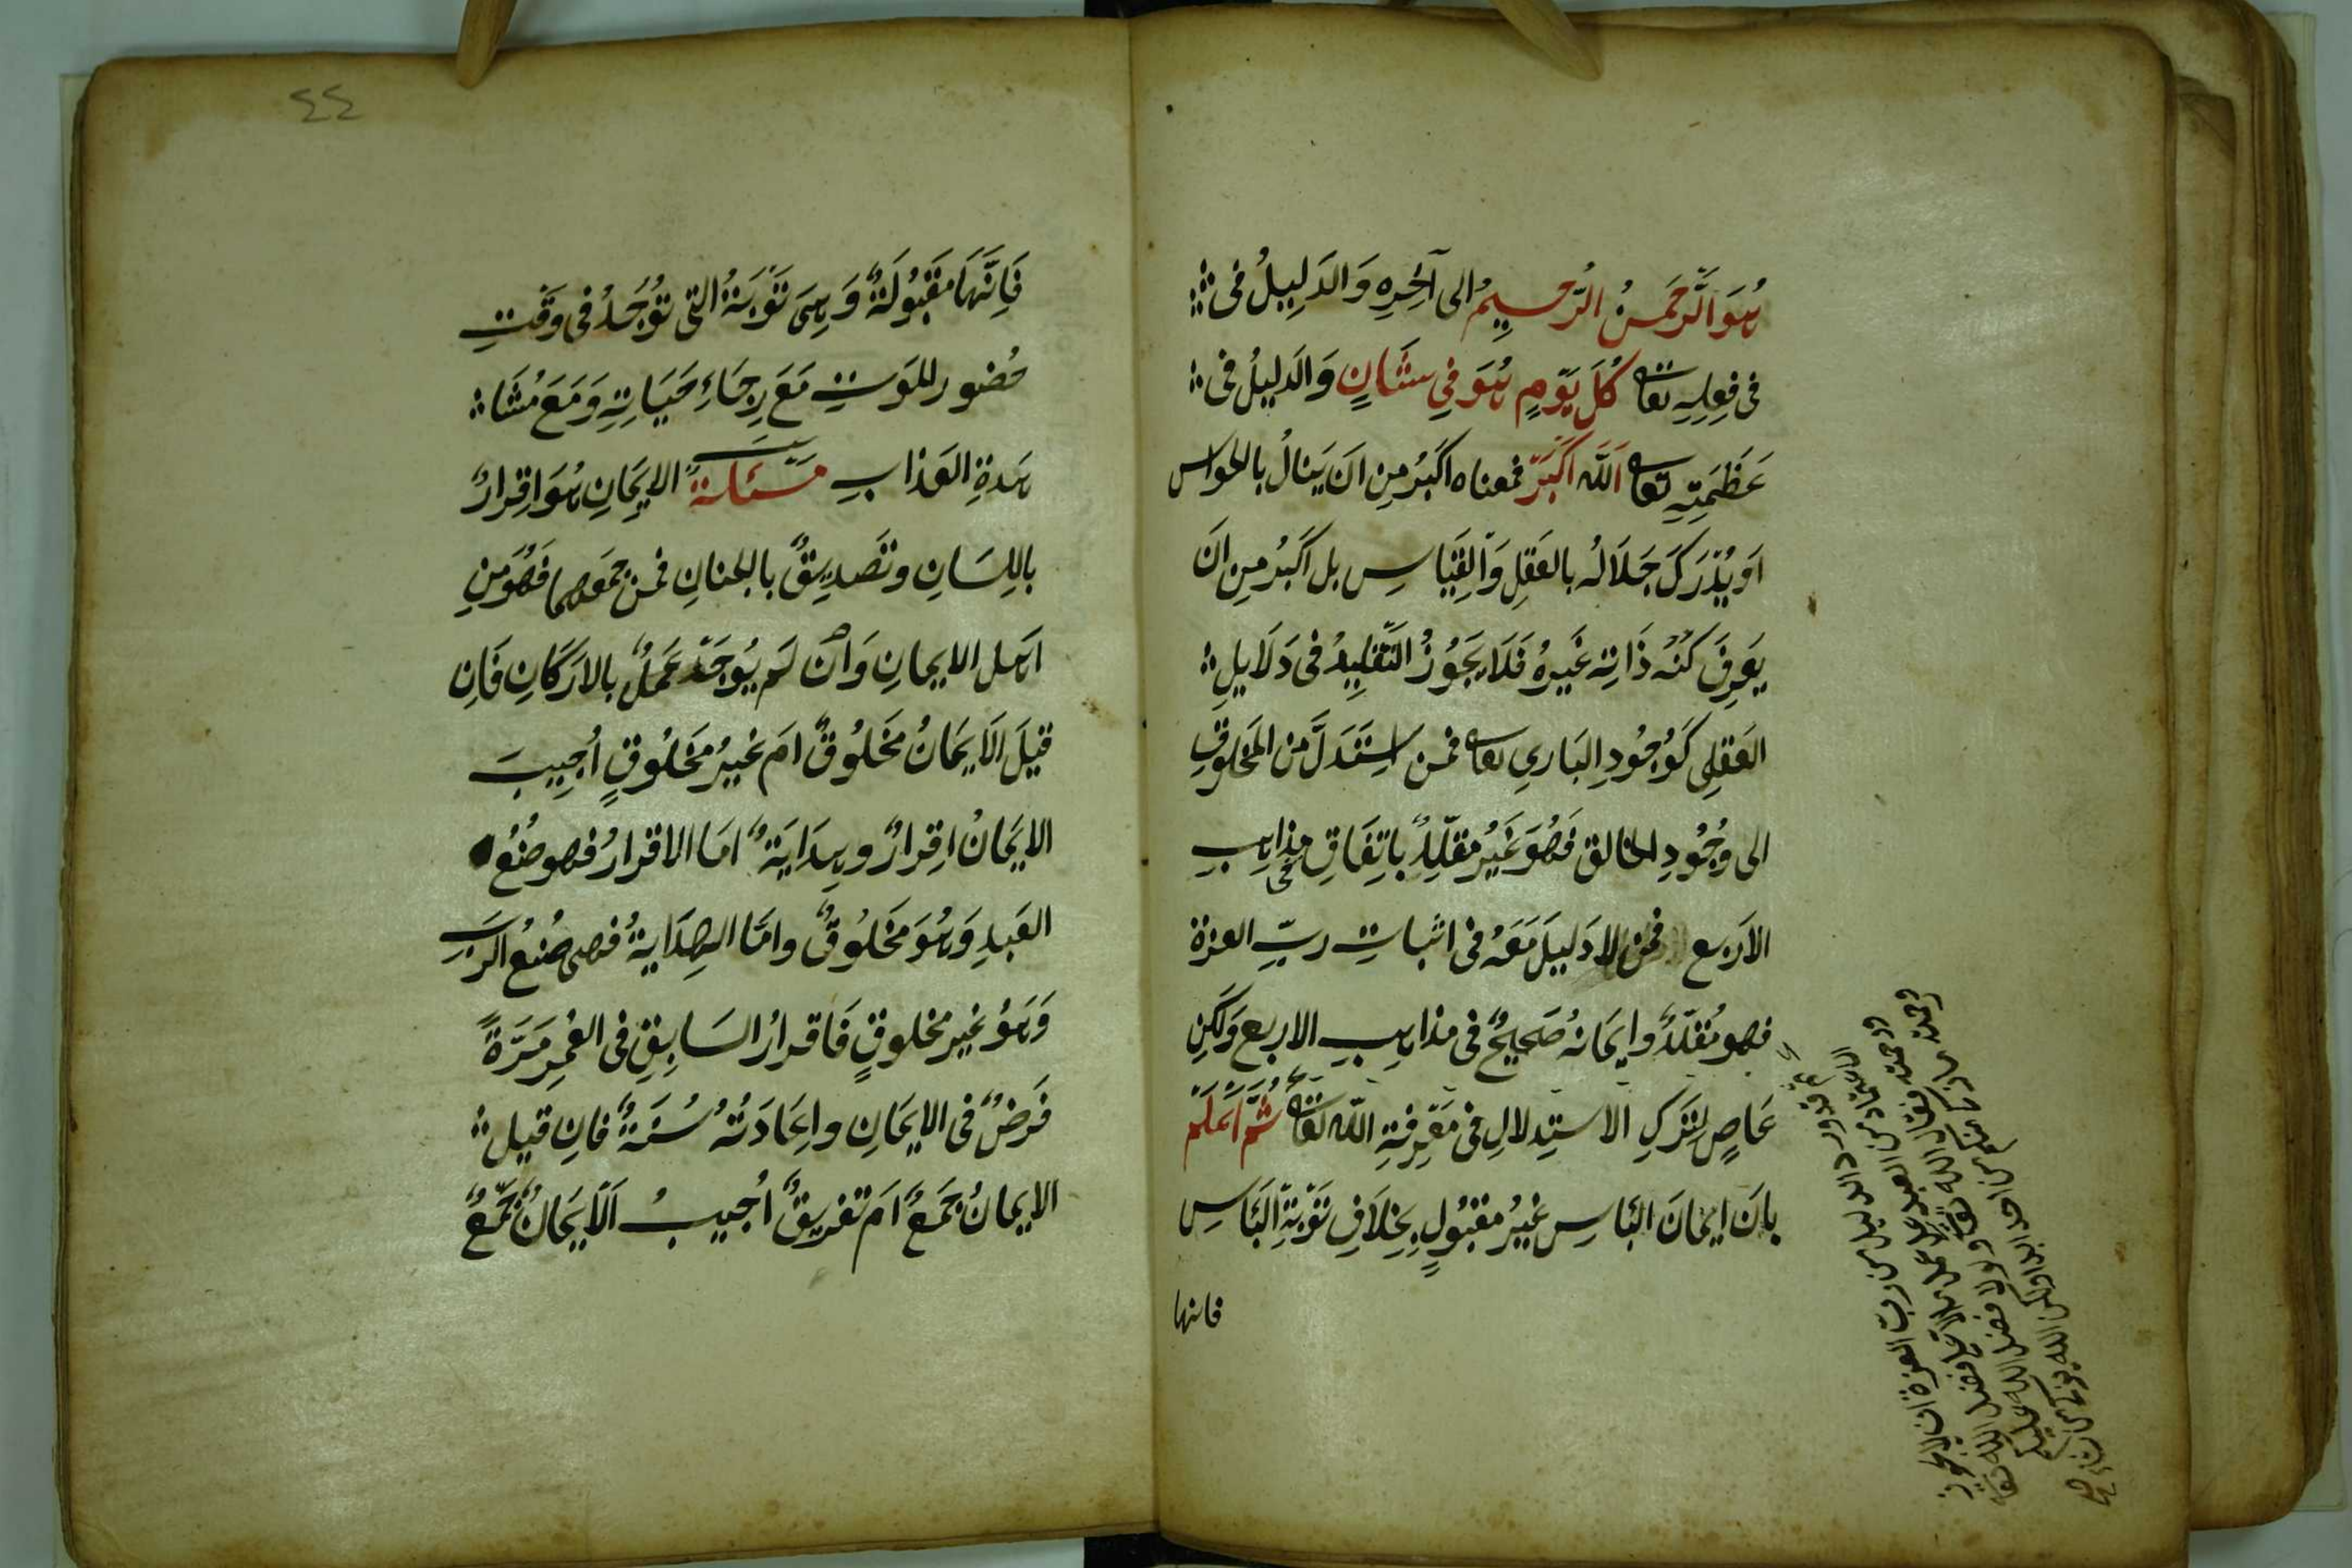 هُوَ الرَّحمَنُ الرَّحِيمُ الى آخِرِهِ وَالدَلِيلُ فى
فى فِعلِهِ تعا كُلَّ يَوْمٍ هُوَ فِي شَانٍ وَالدلِيلُ فى
عَظَمَتِهِ تعا اَللّه اَكبَرُ فمعناه اكبَرُ مِن ان يَنالُ بالحواس
اَوْ يُدْرَكَ جَلَالُه بالعَقلِ وَالقِيَاسِ بل اكبَرُ مِن ان
يَعرِفَ كُنْهَ ذَاتِهِ غَيرُهُ فَلَا يَجُوزُ التَّقلِيدُ فى دَلَايلِ
العَقلِى كَوُجُودِ البَارِي تعا فمن استَدَلَّ مِن المَخلوقِ
الى وُجُودِ الخالقِ فَهُوَ غَيرُ مقلِّدٍ بِاتِفَاقِ مذاهبِ
الاَربع فمن لا دَلِيلَ مَعَهُ فى اثباتِ ربِّ العزة
فهو مُقلّدٌ وايمَانهُ صَحِيحٌ فى مذاهبِ الاربع وَلَكِن
عَاصٍ لِتَركِ الاستِدلالِ فى مَعْرِفةِ اللّه تعا ثُمَّ اعلَم
بانَ ايمانَ البَاسِ غيرُ مقبُولٍ بِخِلَافِ تَوْبَةِ البَاسِ
فانها
وحمة
ورحمته
الاستفادة من العبد
فى رد الدليل من رب العزة ان لا يجوز
٤٤
فَاِنَّهَا مَقبُولَةٌ وَهِىَ تَوْبَةُ التى تُوْجَدُ فى وَقْتِ
حُضورِ الموَتِ مَعَ رِجَاءِ حَيَاتِهِ وَمَعَ مُشَا
هَدةِ العَذابِ مَسْئَلةٌ الاِيمَانِ هُوَ اِقرارٌ
بِاللِسَانِ وتَصدِيقٌ بالجنانِ فمن جمَعهما فَهُوَ مِن
اَهلِ الايمانِ وَان لَم يُوجَد عَمَلٌ بالاَركَانِ فَاِن
قيلَ اَلاِيمَانُ مَخلُوقٌ ام غَيرُ مَخلُوقٍ اُجِيبَ
الايمَانُ اِقرارٌ وهِدَايَةٌ امَا الاقرارُ فهو صُنعُ
العَبدِ وَهُوَ مَخلُوقٌ وامَّا الهِدَايةُ فهى صُنعُ الرَبِّ
وَهُوَ غير مخلوقٍ فَاقرارُ السَابِقِ فى العُمرِ مَرَّةً
فَرضٌ فى الايمَانِ واِعَادَتُهُ سُنَّةٌ فاِن قيلَ
الايمانُ جَمعٌ اَم تَفرِيقٌ اُجيبُ اَلاِيمَانُ جَمعٌ